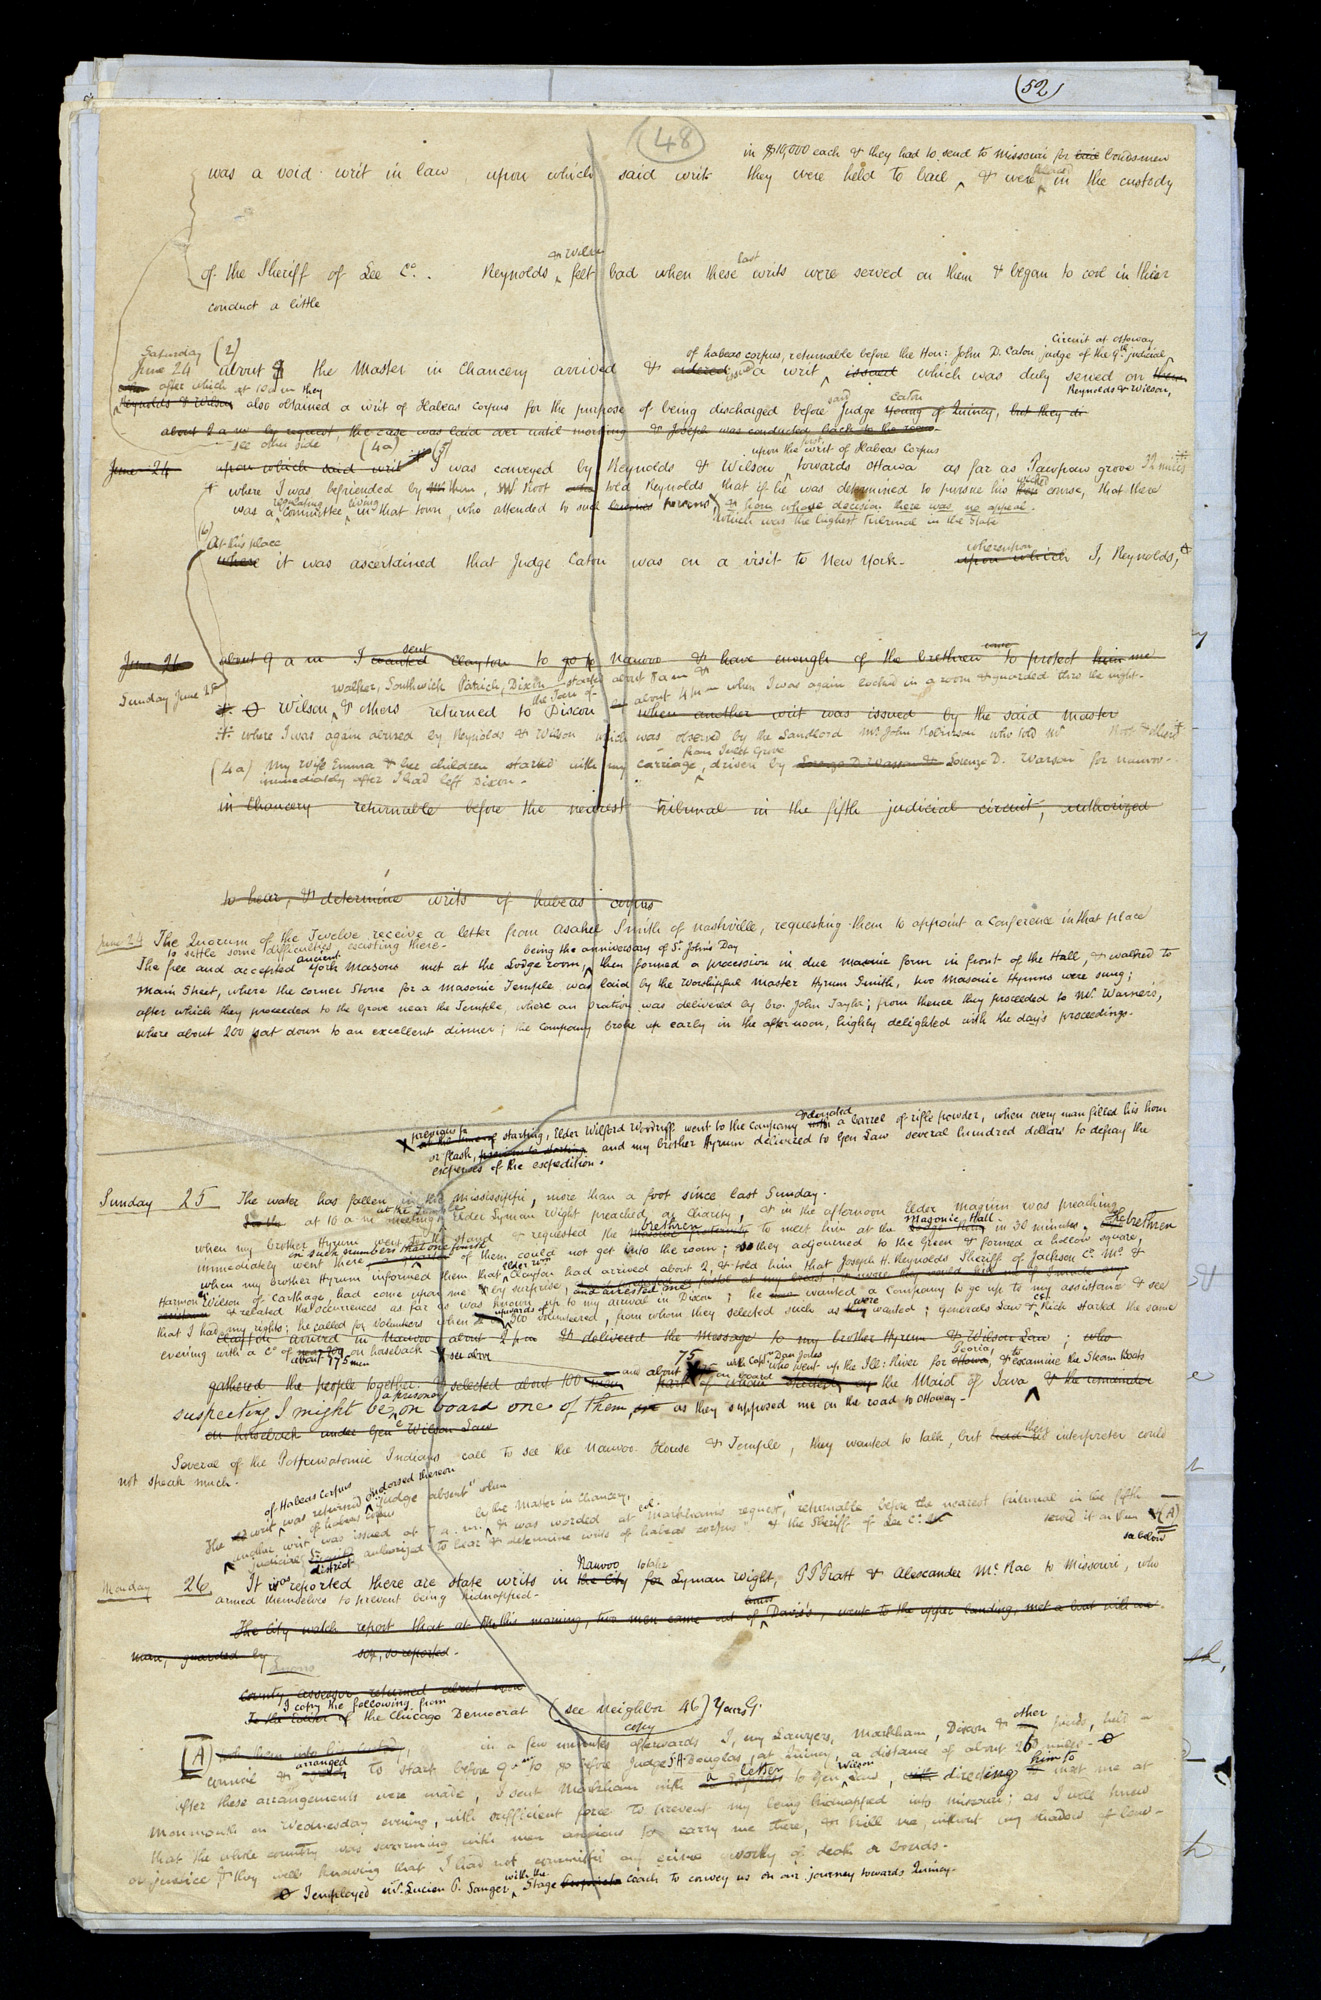 (52)
(48)
in $10,000 each & they had to send to Missouri for bail bondsmen
was a void writ in law, upon which said writ they were held to bail & were in the custody
or Wilson last
of the Sheriff of Lee Co. Reynolds felt bad when these writs were served on them & began to cool in their
conduct a little
circuit at Ottoway
Saturday (2) of habeas corpus, returnable before the Hon: John D. Caton judge of the 9th judicial
June 24 about 8 the Master in Chancery arrived & ordered issued a writ issued which was duly served on them
after which at 10 a m they Reynolds & Wilson,
Reynolds & Wilson also obtained a writ of Habeas corpus for the purpose of being discharged before said Judge Young of Quincy, Caton but they di
about 1 a m by request, the case was laid over until morning & Joseph was conducted back to the
see other side (4a) (5) upon the first writ of Habeas Corpus
June 24 upon which said writ I was conveyed by Reynolds & Wilson towards Ottawa as far as Pawpaw grove 32 miles
where I was befriended by Mr Root told Reynolds that if he was determined to pursue his wicked course, that there
was a regulating committee living in that town, who attended to such persons, & from whose decision there was no appeal.
which was the highest tribunal in the State
(6) At this place whereupon
where it was ascertained that Judge Caton was on a visit to New York. upon which I, Reynolds, &
sent come
June 26 about 9 a m I wanted Clayton to go to Nauvoo & have enough of the brethren to protect him me
Walker, Southwick Patrick, Dixon started about 8 a m &
Sunday June 25 the Town of about 4 p m when I was again locked in a room & guarded thro the night.
Wilson, & others returned to Discon when another writ was issued by the said master
where I was again abused by Reynolds & Wilson which was observed by the Landlord Mr John Robinson who told Mr Root &
from Inlet Grove
(4a) My wife Emma & her children started with my carriage, driven by Lorenzo D Wasson & Lorenzo D. Wasson for Nauvoo.
immediately after I had left Dixon.
in Chancery returnable before the nearest tribunal in the fifth judicial circuit, authorized
to hear, & determine writs of habeas corpus
June 24 The Quorum of the Twelve receive a letter from Asahel Smith of Nashville, requesting them to appoint a Conference in that place
to settle some difficulties existing there.
ancient being the anniversary of St. John's Day
The free and accepted York Masons met at the Lodge room, then formed a procession in due masonic form in front of the Hall, & walked to
Main Street, where the corner Stone for a Masonic Temple, was laid by the Worshipful Master Hyrum Smith, two Masonic Hymns were sung;
after which they proceeded to the Grove near the Temple, where an oration was delivered by Bro. John Taylor; from thence they proceeded to Mr Warner's,
where about 200 sat down to an excellent dinner; the Company broke up early in the afternoon, highly delighted with the day's proceedings.
previous to & donated
X at the time of starting, Elder Wilford Woodruff went to the Company with a barrel of rifle powder, when every man filled his horn
or flask, previous to starting and my brother Hyrum delivered to Gen Law several hundred dollars to defray the
expenses of the expedition.
Sunday 25 The water has fallen in the Mississippi, more than a foot since last Sunday.
at the Temple
at 10 a m meeting Elder Lyman Wight preached on Charity, & in the afternoon Elder Maginn was preaching
brethren Masonic Hall
when my brother Hyrum went to the stand & requested the Masonic fraternity to meet him at the Lodge Room in 30 minutes. The brethren
on such numbers that one fourth
immediately went there a quarter of them could not get into the room; so they adjourned to the Green & formed a hollow square,
Elder Wm
when my brother Hyrum informed them that Clayton had arrived about 2, & told him that Joseph H. Reynolds Sheriff of Jackson Co Mo &
Harmon Wilson of Carthage, had come upon me by surprise, and arrested me; he wanted a Company to go up to my assistance & see
& related the occurrences as far as was known up to my arrival in Dixon
upwards of were Cs.
that I had my rights; he called for volunteers when 300 volunteered, from whom they selected such as they wanted; Generals Law & Rich started the same
Clayton arrived in Nauvoo about 2 p m & delivered the Message to my brother Hyrum & Wilson Law; who
evening with a Co of about 175 men on horseback see above
75 with Capt Dan Jones Peoria, to
and about who went up the Ill: River for Ottawa, & examine the Steam Boats
on board
gathered the people together & selected about 100 men part of whom started on the Maid of Iowa & the remainder
a prisoner
suspecting I might be on board one of them, as they supposed me on the road to Ottoway.
on horseback under Genl Wilson Law
Several of the Pottawatomie Indians call to see the Nauvoo House & Temple, they wanted to talk, but had their interpreter could
not speak much.
of Habeas Corpus endorsed thereon
The writ was returned "judge absent" when
of habeas corpus by the Master in Chancery, col.
another writ was issued at 7 a. m. & was worded at Markham's request, "returnable before the nearest tribunal in the fifth
judicial district authorized to hear & determine writs of habeas corpus" & the Sheriff of Lee Co. served it on them (A)
see below
Nauvoo to take
Monday 26 It is was reported there are State writs in the City for Lyman Wight, P P Pratt & Alexander McRae to Missouri, who
armed themselves to prevent being kidnapped.
The City watch report that at this morning, two men came out of Davis's, went to the upper landing, met a boat with one
man, guarded by six, so reported.
County assessor returned about
I copy the following from
To the Editor of the Chicago Democrat (see Neighbor 46) Yours G.
copy
[A] in a few minutes afterwards I, my Lawyers, Markham, Dixon & other friends, held a
council & arranged to start before 9 to go before Judge S A Douglas, at Quincy, a distance of about 260 miles.
a letter Wilson him to
after these arrangements were made, I sent Markham with to Gen Law, directing meet me at
Monmouth on Wednesday evening, with sufficient force to prevent my being kidnapped into Missouri; as I well knew
that the whole country was swarming with men anxious to carry me there, & kill me, without any shadow of law
or justice & they well knowing that I had not committed any crime worthy of death or bonds.
with the
I employed Mr. Lucien P. Sanger Stage coach to convey us on our journey towards Quincy.